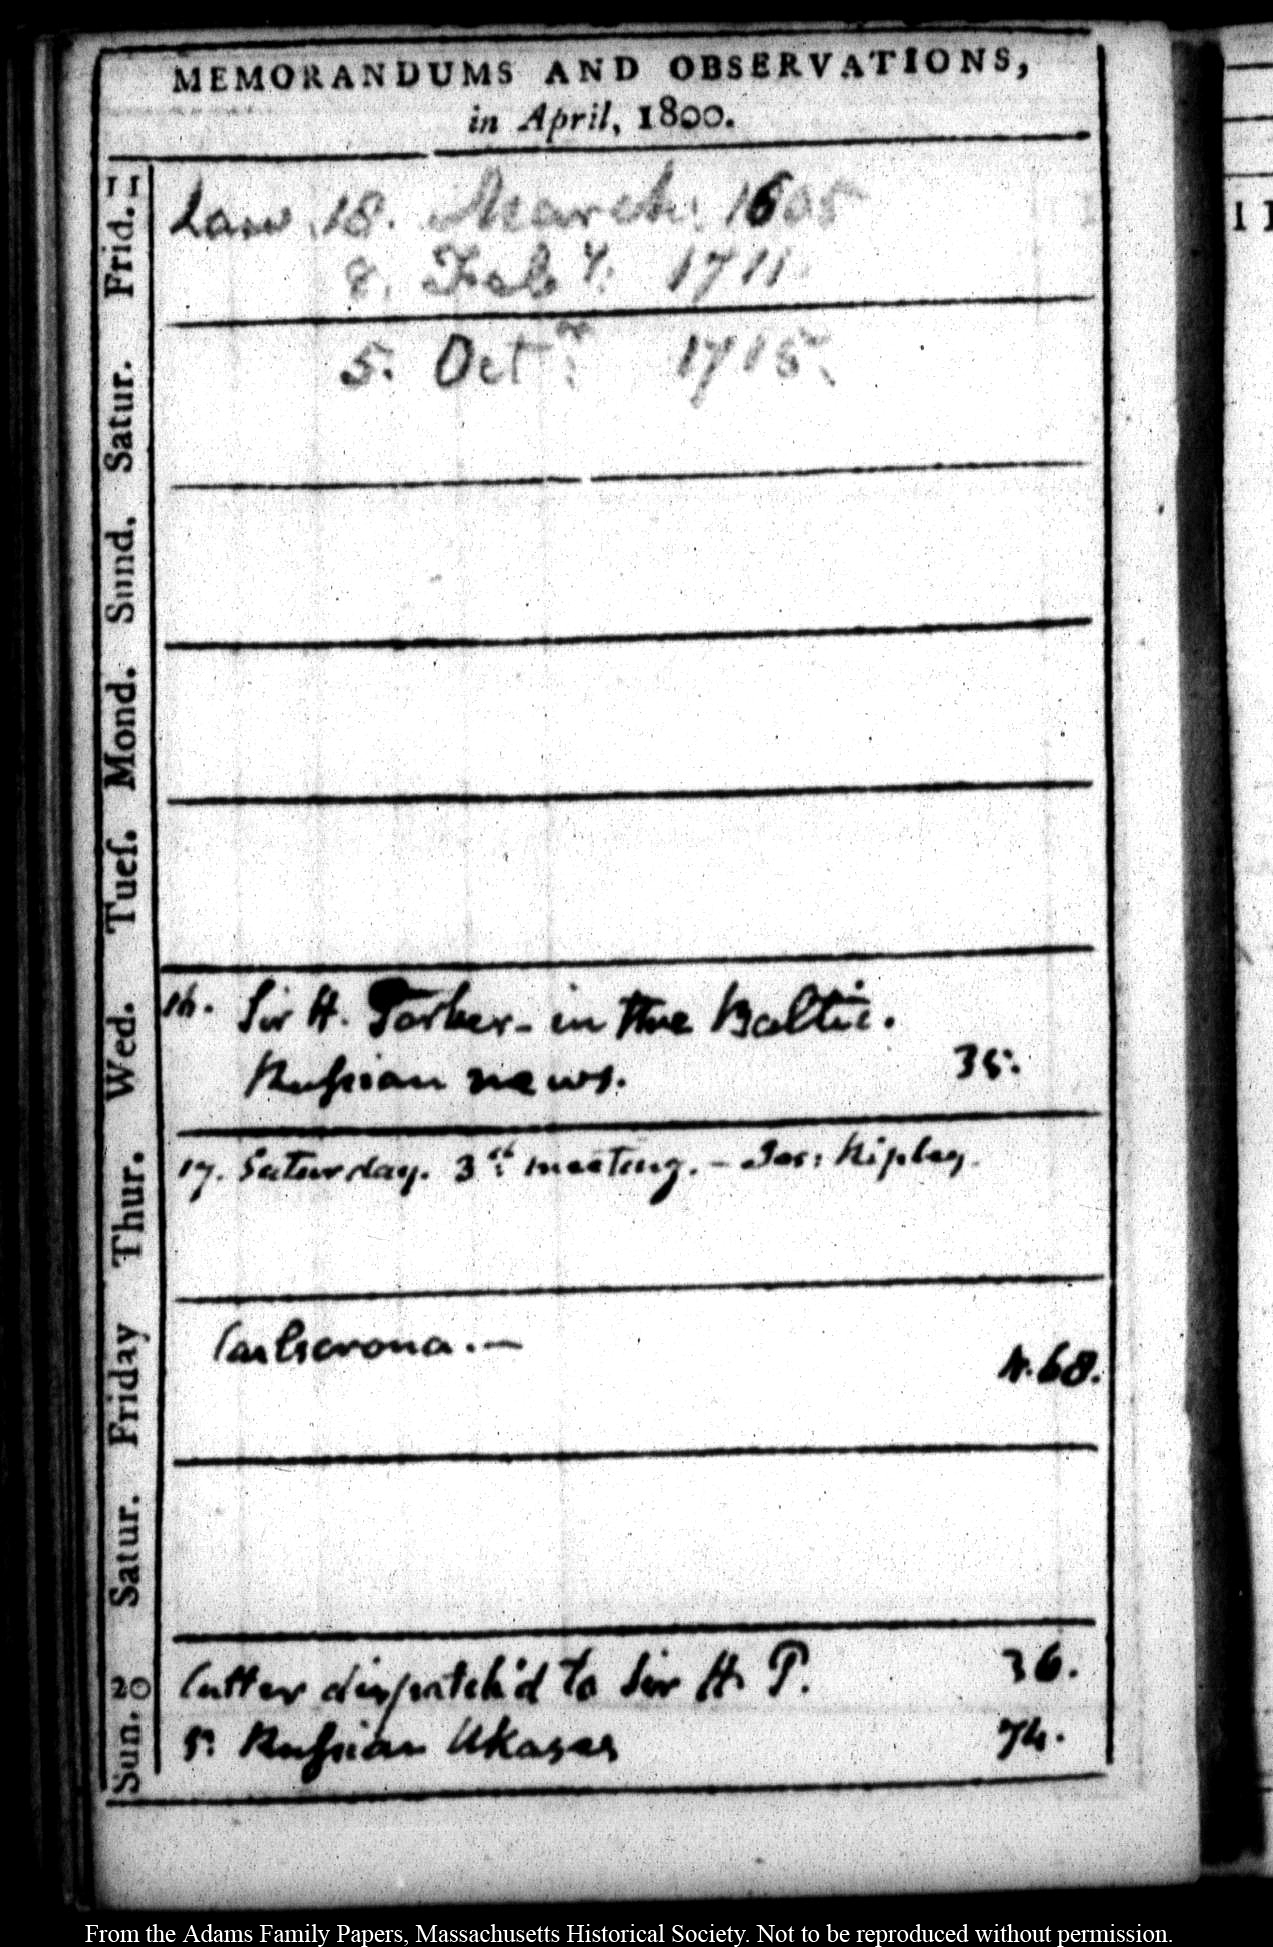 MEMORANDUMS AND OBSERVATIONS,
in April, 1800.
Frid. 11
Law 18. March. 1605
8. Feb.y 1711
Satur.
5. Oct.r 1715.
Sund.
Mond.
Tueſ.
Wed.
16. Sir H. Parker - in the Baltic.
Ruſsian news. 35.
Thur.
17. Saturday. 3.d meeting. - Jas: Ripley.
Friday
Carlscrona. — 4.68.
Satur.
Sun. 20
Cutter dispatch'd to Sir H. P. 36.
5. Ruſsian Ukases 74.
11
From the Adams Family Papers, Massachusetts Historical Society. Not to be reproduced without permission.